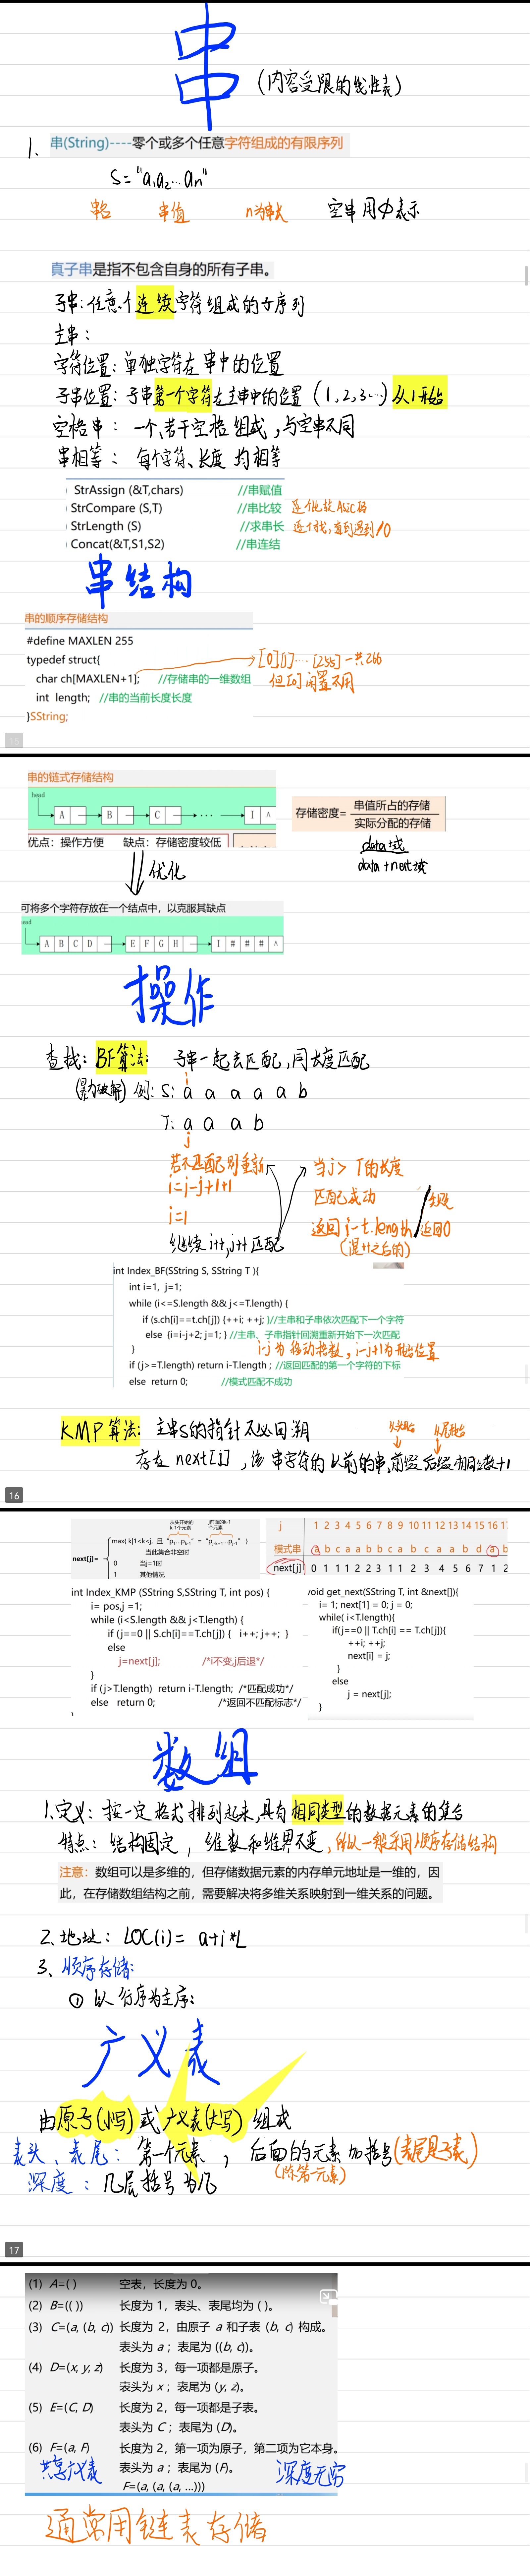 串
(内容受限的线性表)
1、串(String)----零个或多个任意字符组成的有限序列
S="a₁a₂…an"
串名 串值 n为串长 空串用Φ表示
真子串是指不包含自身的所有子串。
子串:任意个连续字符组成的子序列
主串:
字符位置:单独字符在串中的位置
子串位置:子串第一个字符在主串中的位置(1,2,3…)从1开始
空格串:一个、若干空格组成,与空串不同
串相等:每个字符、长度均相等
StrAssign (&T,chars) //串赋值
StrCompare (S,T) //串比较
StrLength (S) //求串长
Concat(&T,S1,S2) //串连结
串结构
串的顺序存储结构
#define MAXLEN 255
typedef struct{
char ch[MAXLEN+1]; //存储串的一维数组
[0][1]…[255]一共266
int length; //串的当前长度长度
但[0]闲置不用
}SString;
串的链式存储结构
head
A B C … I ∧
优点:操作方便 缺点:存储密度较低
存储密度= 串值所占的存储
实际分配的存储
data域
data+next域
优化
可将多个字符存放在一个结点中,以克服其缺点
A B C D E F G H I # # # ∧
操作
查找:BF算法: 子串一起去匹配,同长度匹配
(暴力破解) 例: S: a a a a a b
i
T: a a a b
j
若不匹配则重新
i=i-j+1+1
j=1
继续i++,j++匹配
当j>T的长度
匹配成功
返回i-t.length
失败
返回0
int Index_BF(SString S, SString T ){
int i=1, j=1;
while (i<=S.length && j<=T.length) {
if (s.ch[i]==t.ch[j]) {++i; ++j; }//主串和子串依次匹配下一个字符
else {i=i-j+2; j=1; } //主串、子串指针回溯重新开始下一次匹配
}
i-j为移动格数,i-j+1为开始位置
if (j>=T.length) return i-T.length ; //返回匹配的第一个字符的下标
else return 0; //模式匹配不成功
KMP算法:主串S的指针不必回溯
从头开始 从尾开始
存在next[j],该串字符的以前的串,前缀后缀相同数+1
16
从头开始的k-1个元素
j前面的k-1个元素
next[j]= max{ k|1<k<j, 且 "p₁…pk-1" = "pj-k+1…pj-1" }
当此集合非空时
0 当j=1时
1 其他情况
j 1 2 3 4 5 6 7 8 9 10 11 12 13 14 15 16 1
模式串 a b c a a b b c a b c a a b d a b
next[j] 0 1 1 1 2 2 3 1 1 2 3 4 5 6 7 1 2
int Index_KMP (SString S,SString T, int pos) {
i= pos,j =1;
while (i<S.length && j<T.length) {
if (j==0 || S.ch[i]==T.ch[j]) { i++; j++; }
else
j=next[j]; /*i不变,j后退*/
}
if (j>T.length) return i-T.length; /*匹配成功*/
else return 0; /*返回不匹配标志*/
void get_next(SString T, int &next[]){
i= 1; next[1] = 0; j = 0;
while( i<T.length){
if(j==0 || T.ch[i] == T.ch[j]){
++i; ++j;
next[i] = j;
}
else
j = next[j];
}
数组
1.定义:按一定格式排列起来,具有相同类型的数据元素的集合
特点:结构固定,维数和维界不变,所以一般采用顺序存储结构
注意:数组可以是多维的,但存储数据元素的内存单元地址是一维的,因
此,在存储数组结构之前,需要解决将多维关系映射到一维关系的问题。
2、地址:LOC(i)= a+i*L
3、顺序存储:
① 以行序为主序:
广义表
由原子(小写)或广义表(大写)组成
表头、表尾:第一个元素,后面的元素加括号(表尾是子表)
(除第一元素)
深度:几层括号为几
17
(1) A=( ) 空表,长度为 0。
(2) B=(( )) 长度为 1,表头、表尾均为 ( )。
(3) C=(a, (b, c)) 长度为 2,由原子 a 和子表 (b, c) 构成。
表头为 a ;表尾为 ((b, c))。
(4) D=(x, y, z) 长度为 3,每一项都是原子。
表头为 x ;表尾为 (y, z)。
(5) E=(C, D) 长度为 2,每一项都是子表。
表头为 C ;表尾为 (D)。
(6) F=(a, F) 长度为 2,第一项为原子,第二项为它本身。
共享广义表 表头为 a ;表尾为 (F)。 深度无穷
F=(a, (a, (a, …)))
通常用链表存储